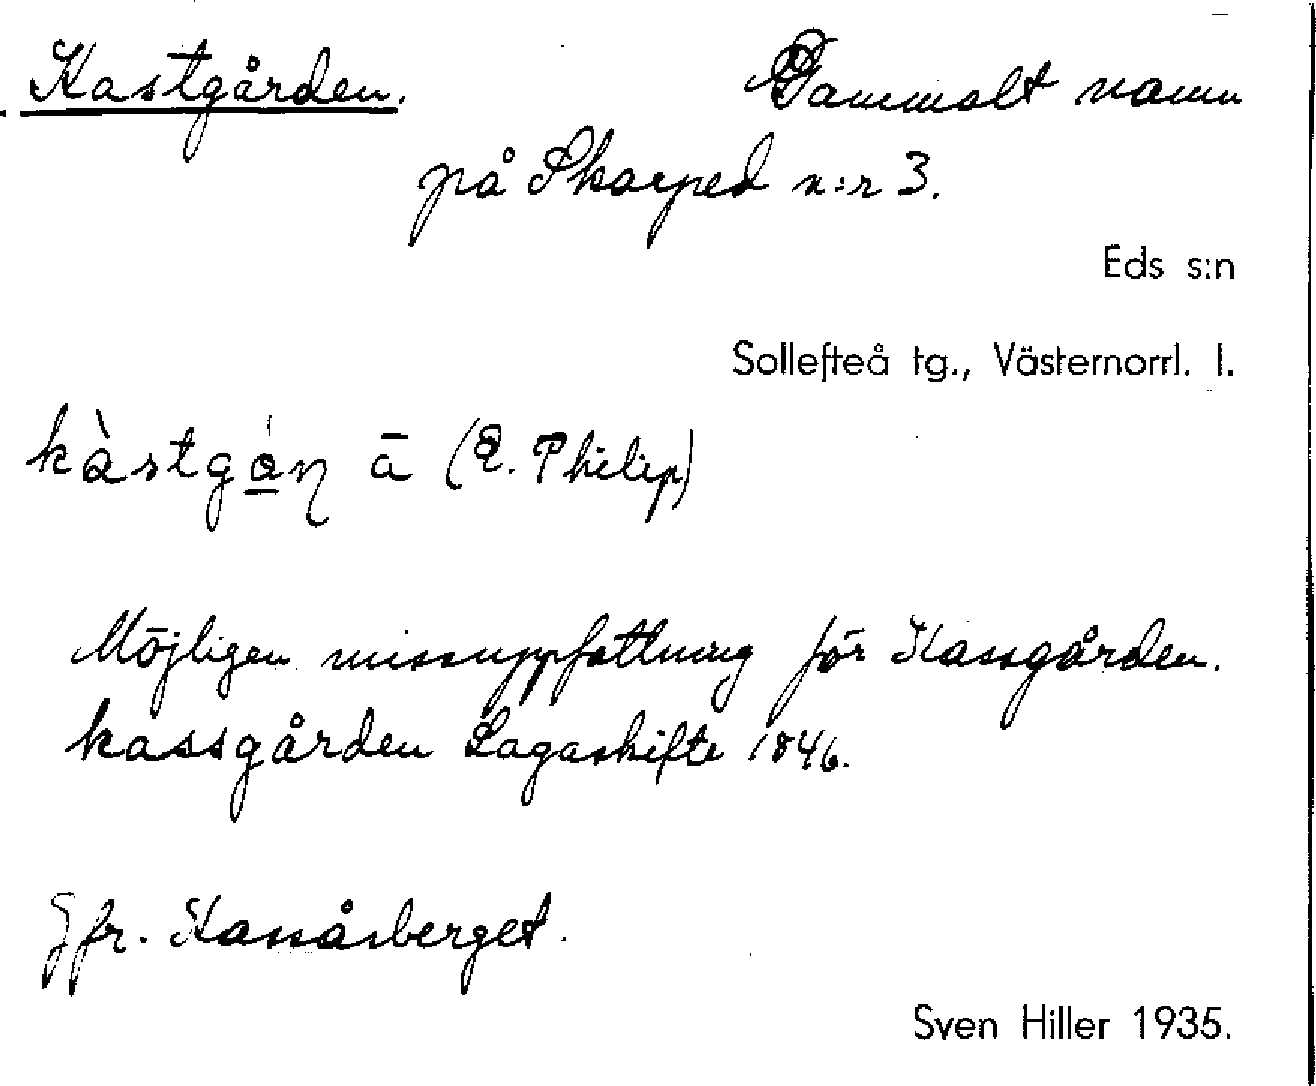 Kastgården. Gammalt namn
på Skarped n:r 3.
Eds s:n
Sollefteå tg., Västernorrl. l.
kàstgáṇ ā (E. Philip)
Möjligen missuppfattning för Kassgården.
kassgården Lagaskifte 1846.
Jfr. Kassåsberget.
Sven Hiller 1935.